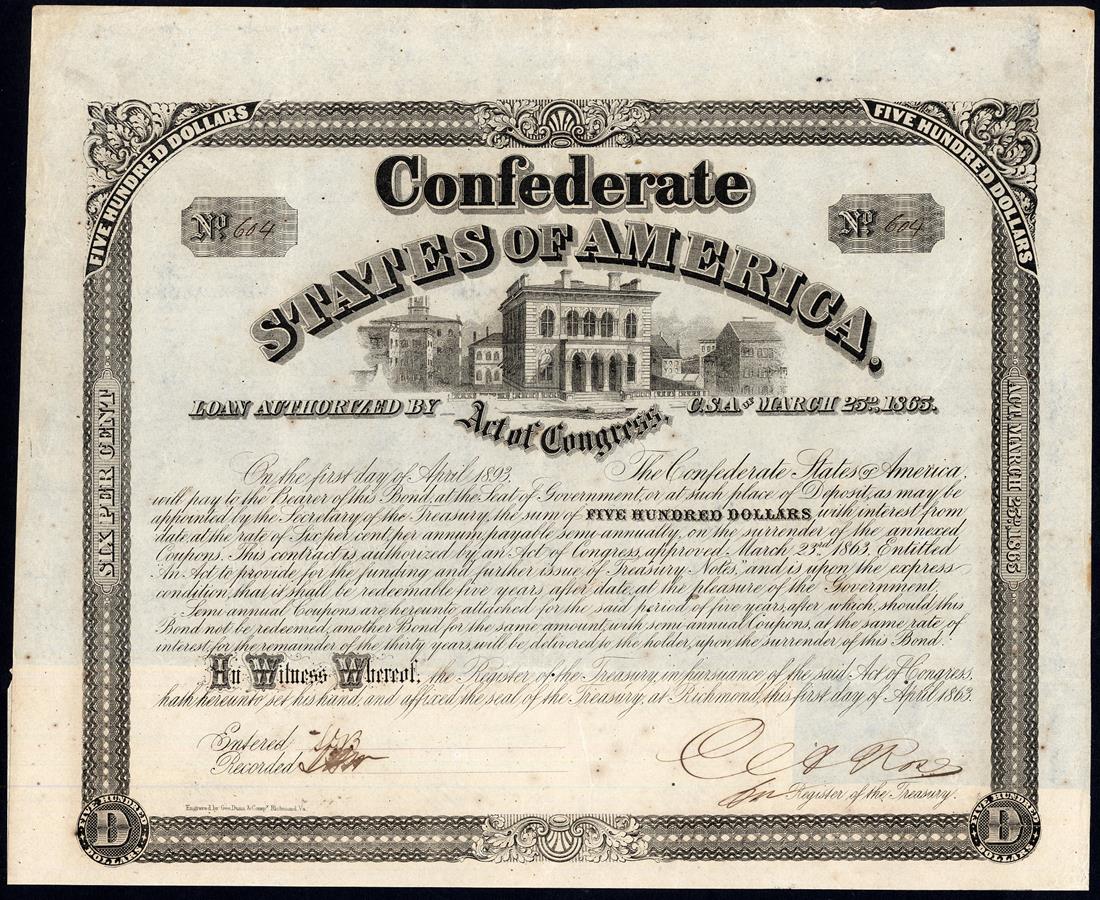 FIVE HUNDRED DOLLARS
FIVE HUNDRED DOLLARS
Confederate
No. 604
No. 604
STATES OF AMERICA.
LOAN AUTHORIZED BY
C.S.A. OF MARCH 23D. 1863.
Act of Congress,
SIX PER CENT
ACT MARCH 23D. 1863
On the first day of April 1893. The Confederate States of America,
will pay to the Bearer of this Bond, at the Seat of Government, or at such place of Deposit, as may be
appointed by the Secretary of the Treasury, the sum of FIVE HUNDRED DOLLARS, with interest from
date, at the rate of Six per cent, per annum, payable semi-annually, on the surrender of the annexed
Coupons. This contract is authorized by an Act of Congress, approved March 23rd 1863, Entitled
"An Act to provide for the funding and further issue of Treasury Notes," and is upon the express
condition, that it shall be redeemable five years after date, at the pleasure of the Government.
Semi annual Coupons are hereunto attached for the said period of five years, after which, should this
Bond not be redeemed, another Bond for the same amount, with semi annual Coupons, at the same rate of
interest, for the remainder of the thirty years, will be delivered to the holder, upon the surrender of this Bond.
In Witness Whereof, the Register of the Treasury, in pursuance of the said Act of Congress,
hath hereunto set his hand, and affixed the seal of the Treasury, at Richmond, this first day of April 1863.
Entered
Recorded
C A Rose
for Register of the Treasury.
Engraved by Geo. Dunn & Compy. Richmond, Va.
FIVE HUNDRED
D
DOLLARS
FIVE HUNDRED
D
DOLLARS